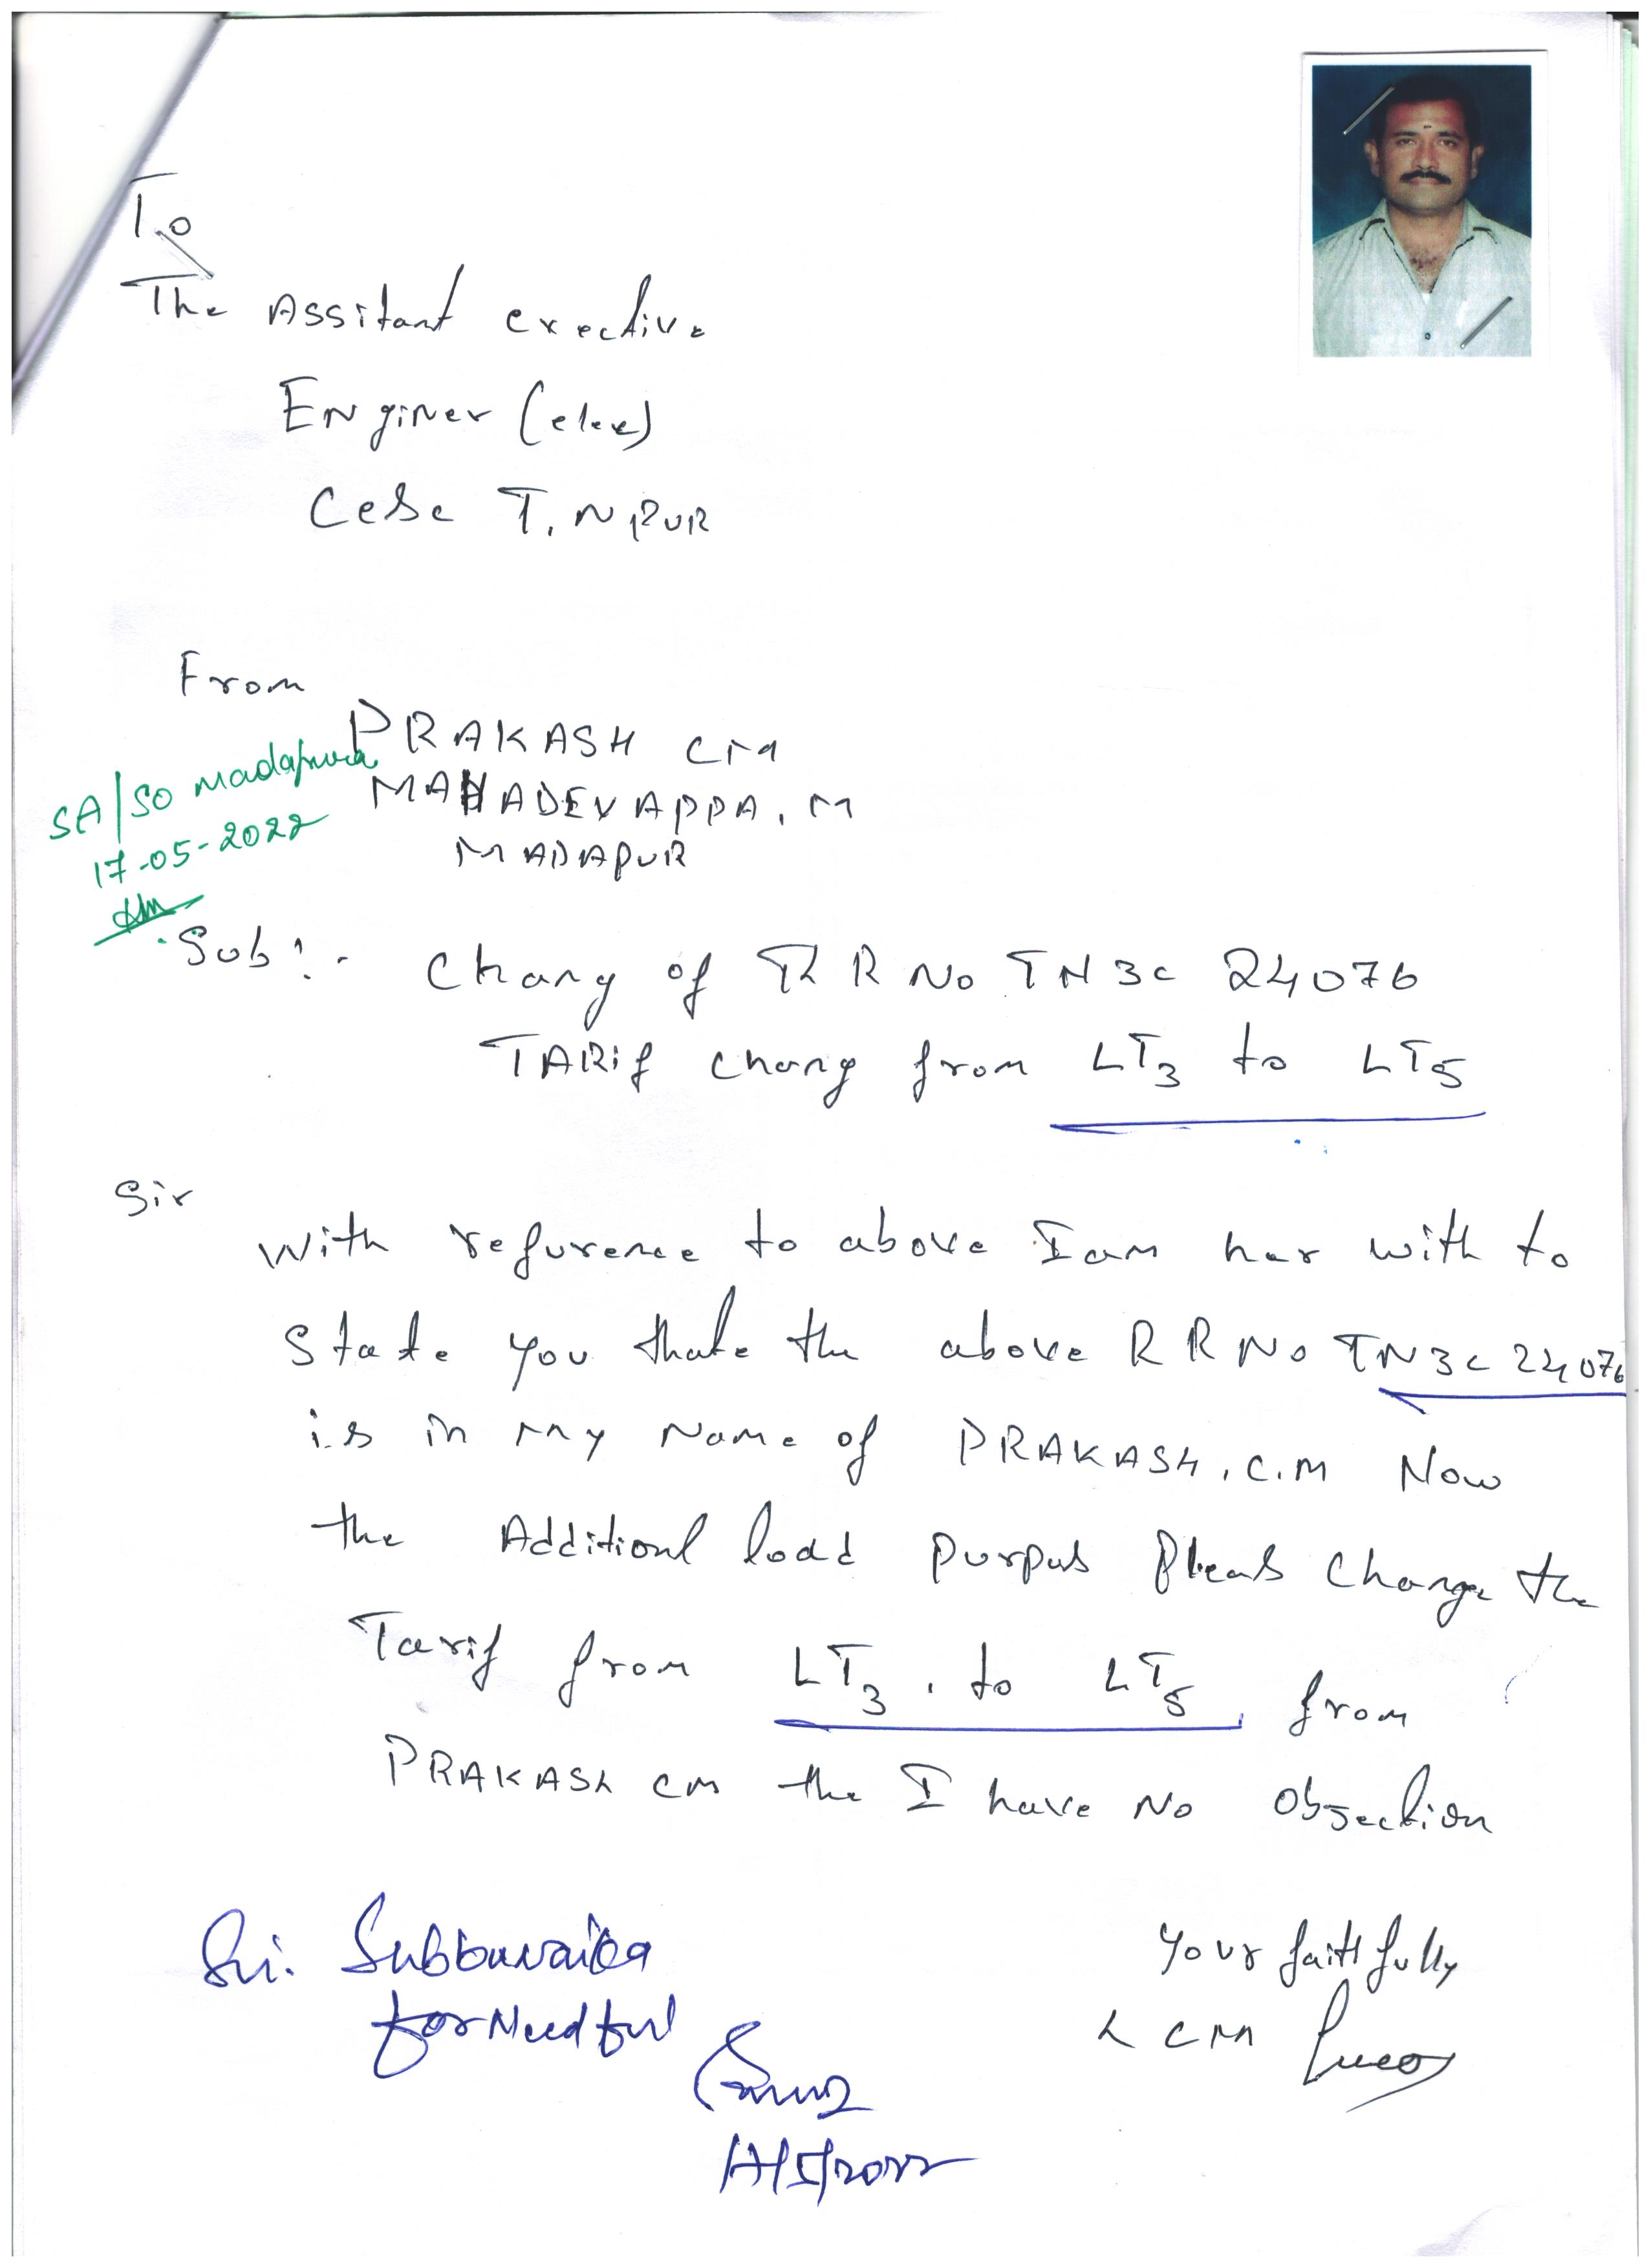 To
The Assitant exective
Enginer (elec)
Cesc T. NPUR
From
PRAKASH CM
MAHADEVAPPA. M
MADAPUR
SA/SO Madapura
17-05-2022
Sub :- Chang of R R No TN3c 24076
TARif chang from LT3 to LT5
Sir
With refurence to above I am her with to
State you thate the above R R No TN3c 24076
is in my Name of PRAKASH. C. M Now
the Additionl load purpus pleas change the
Tarif from LT3. to LT5 from
PRAKASH CM the I have No Objection
Your faithfully
Sri. Subbunaika
for Needful